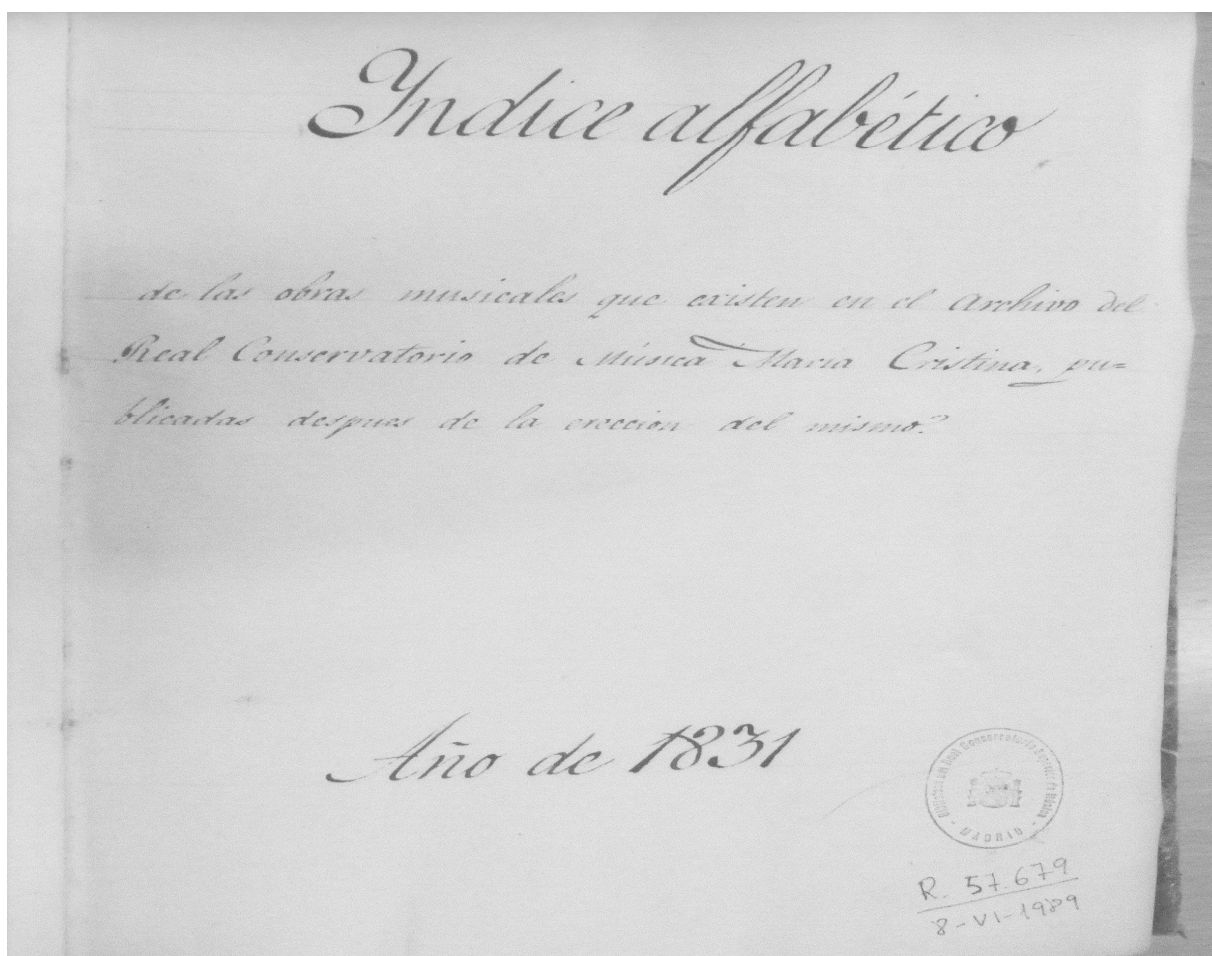 Yndice alfabético
de las obras musicales que existen en el Archivo del
Real Conservatorio de Música Maria Cristina, pu=
blicadas despues de la ereccion del mismo.
Año de 1831
Biblioteca del Real Conservatorio Superior de Música
- MADRID -
R. 57.679
8-VI-1989